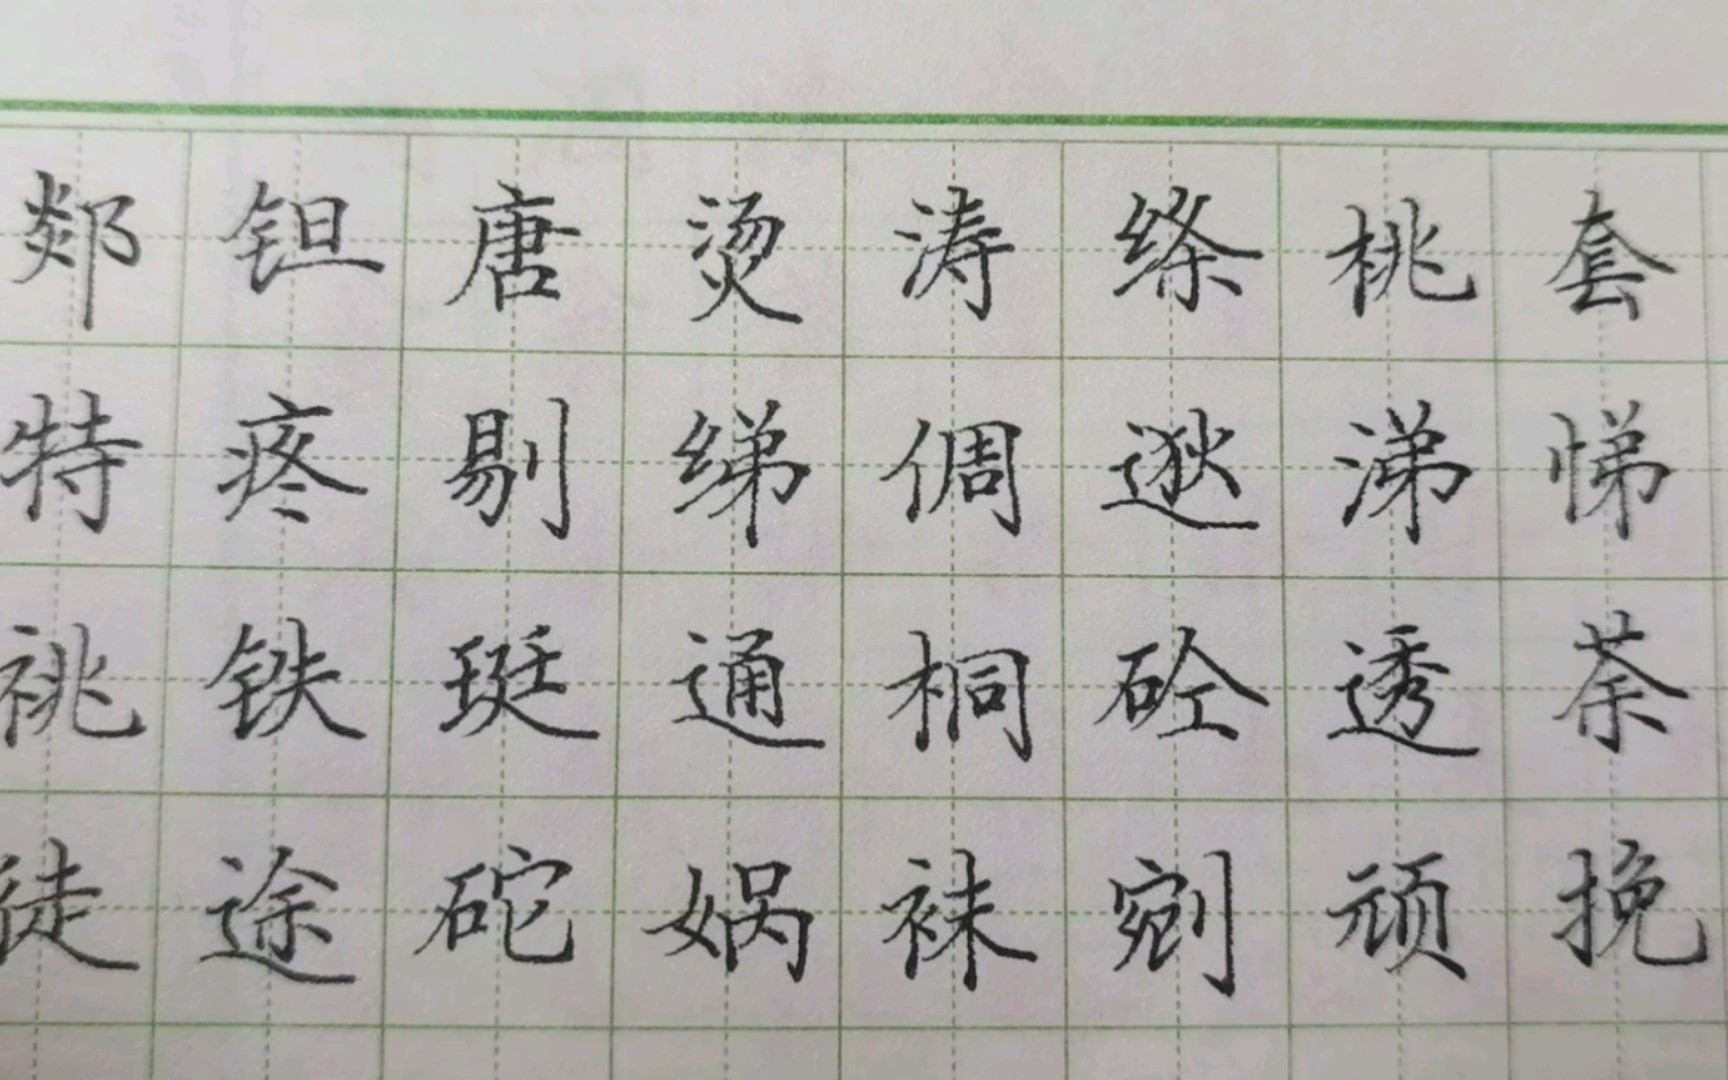 郯钽唐烫涛绦桃套
特疼剔绨倜逖涕悌
祧铁珽通桐砼透荼
徒途砣娲袜剜顽挽